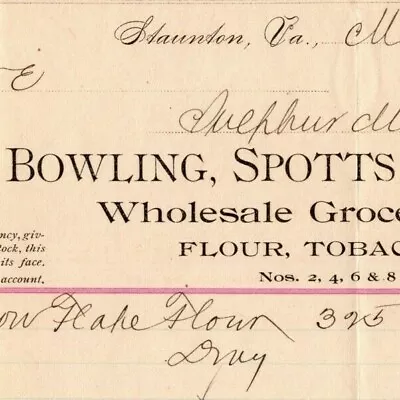 Staunton, Va., M
E
Sulphur M
BOWLING, SPOTTS
Wholesale Groce
ncy, giv-
tock, this
its face.
account.
FLOUR, TOBAC
Nos. 2, 4, 6 & 8
ow Flake Flour 325
Dray